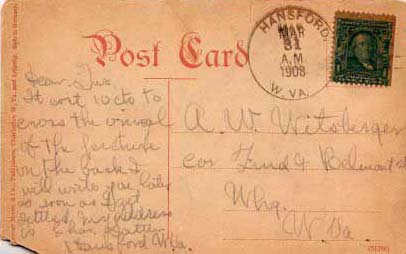 Post Card
HANSFORD,
MAR
31
A.M
1908
W. VA.
Dear Gus.
It cost 10 cts to
cross the
of the picture
on the back I
will write you later
as soon as I get
settled, my address
is Chas.
Hansford W.Va.
A. W. Witsberger
cor & Belmont
Whg.
W Va.